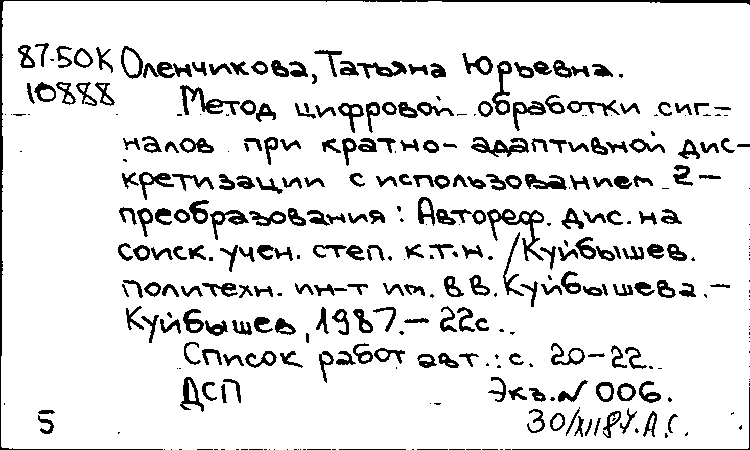 87-50К Оленчикова, Татьяна Юрьевна.
10888 Метод цифровой обработки сиг-
налов при кратно-адаптивной дис-
кретизации с использованием Z-
преобразования: Автореф. дис. на
соиск. учен. степ. к.т.н. /Куйбышев.
политехн. ин-т им. В.В. Куйбышева.-
Куйбышев, 1987.- 22с..
Список работ авт.: с. 20-22.
ДСП Экз.N 006.
5 А.С.